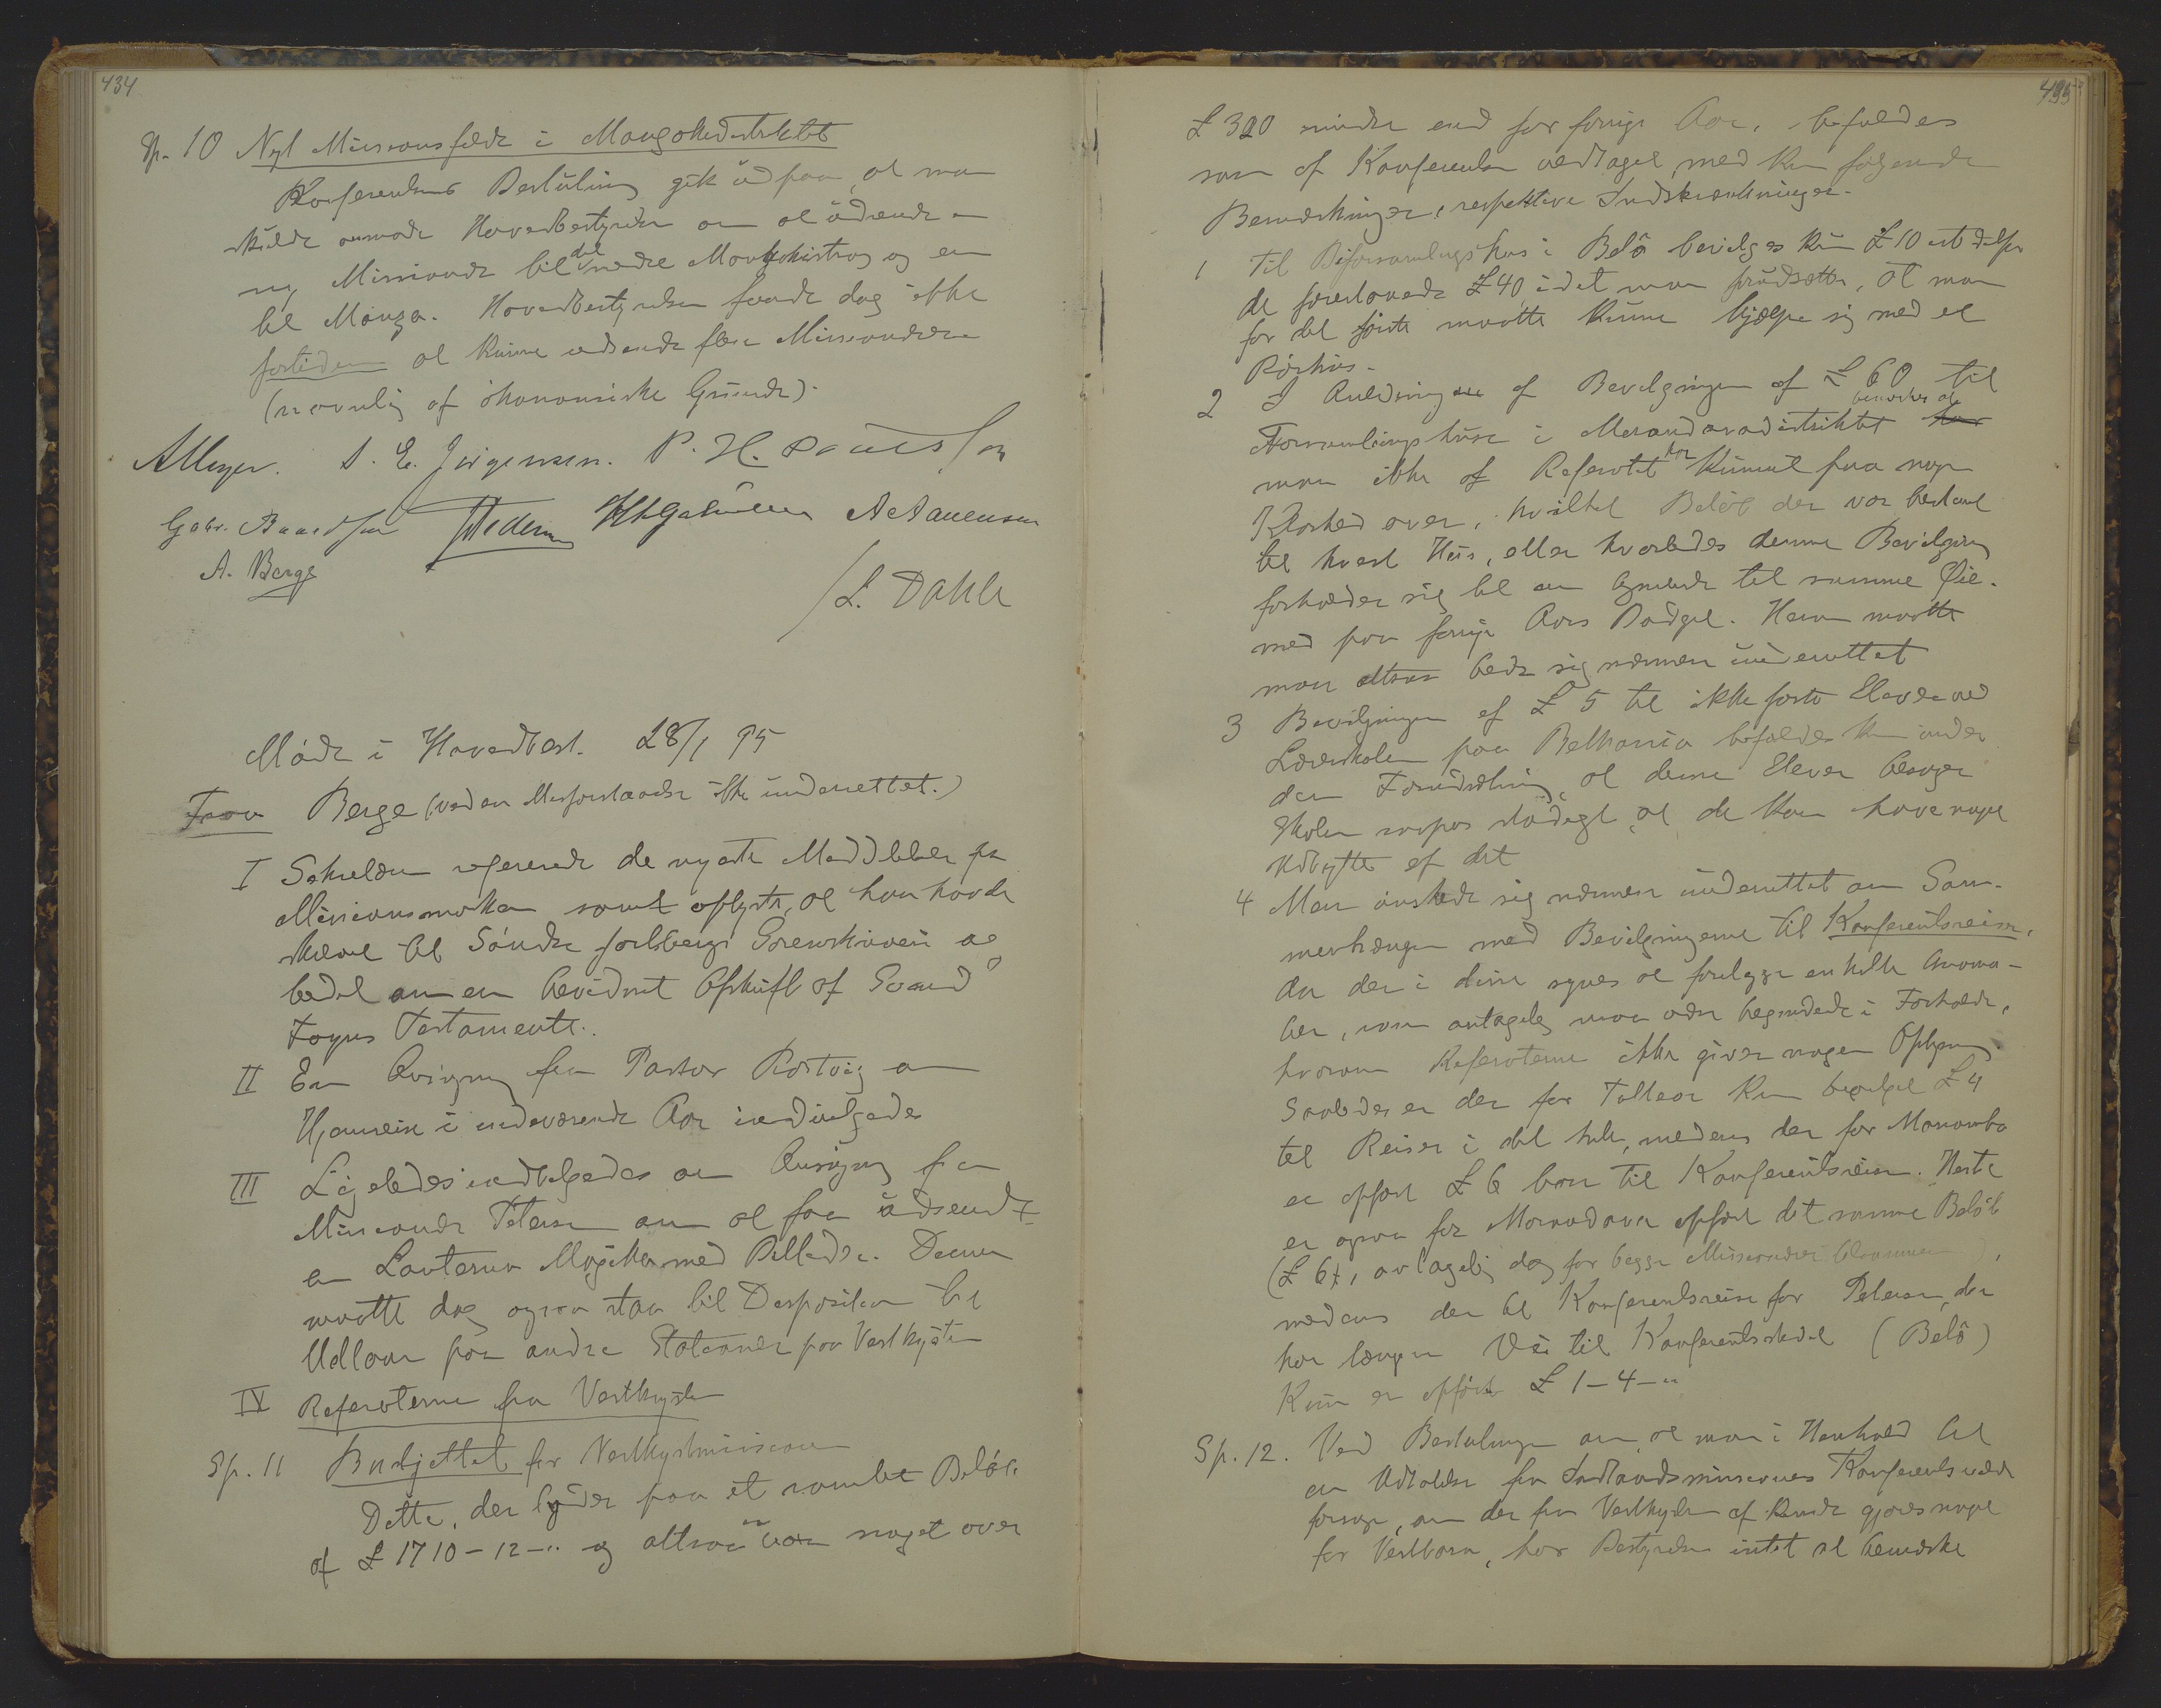 434
Sp. 10 Nyt Missionsfeldt i Mangokedistriktet
Konferentsens Beslutning gik ud paa, at man
skulde anmode Hovedbestyrelsen om at udsende en
ny Missionær til det nedre Mangokistrøg og en
til Manza. Hovedbestyrelsen fandt dog ikke
fortiden at kunne udsende flere Missionærer
(navnlig af økonomiske Grunde).
A Meyer. S. E. Jørgensen. P. H. Poulsson
Gabr. Baardsen A Aanensen
A. Berge
L. Dahle
Møde i Hovedbest. 28/1 95
Frav. Berge (ved en Misforstaaelse ikke underrettet.)
I Sekretæren refererede de nyeste Meddelelser fra
Missionsmarken samt oplyste, at han havde
skrevet til Søndre Sorenskriveri og
bedet om en bevidnet Afskrift af Svend
Foyns Testamente.
II En Ansøgning fra Pastor Rostvig om
Hjemreise i indeværende Aar indvilgedes
III Ligeledes indvilgedes en Ansøgning fra
Missionær Petersen om at faa udsendt
en Lanterna Magika med Billeder. Denne
maatte dog ogsaa staa til Disposition til
Udlaan paa andre Stationer paa Vestkysten
IV Referaterne fra Vestkysten
Sp. 11 Budjettet for Vestkystmissionen
Dette, der lyder paa et samlet Beløb
af £ 1710-12-" og altsaa er noget over
435
£ 320 mindre end for forrige Aar, befaldes
som af Konferentsen vedtaget, med kun følgende
Bemærkninger, respektive Indskrænkninger.
1 Til Biforsamlingshus i Belo bevilges kun £ 10 istedetfor
de foreslaaede £ 40, idet man forudsætter, at man
for det første maatte kunne hjælpe sig med et
Rørhus.
2 I Anledning af Bevilgningen af £ 60 til
Forsamlingshuse i Morandavadistriktet bemærkes at
man ikke af Referatet har kunnet faa nogen
Klarhed over, hvilket Beløb der var bestemt
til hvert Hus, eller hvorledes denne Bevilgning
forholder sig til en lignende til samme Øie-
med paa forrige Aars Budget. Herom maatte
man altsaa bede sig nærmere underrettet
3 Bevilgningen af £ 5 til ikke faste Elever ved
Lærerskolen paa Bethania befaldes kun under
den Forudsætning, at denne Elever besøger
Skolen saapas stadigt, at de kan have noget
Udbytte af det
4 Man ønskede sig nærmere underrettet om Sam-
menhængen med Bevilgningerne til Konferentsreiser,
da der i disse synes at foreligge enkelte Anoma-
lier, som antagelig maa være begrundede i Forholde,
hvorom Referaterne ikke giver nogen Oplysning.
Saaledes er der for Tullear kun bevilget £ 4
til Reiser i det hele, medens der for Manombo
er opført £ 6 bare til Konferentsreiser. Herte
er ogsaa for Morondava opført det samme Beløb
(£ 6), antagelig dog for begge Missionærer tilsammen,
medens der til Konferentsreise for Petersen, der
har længere Vei til Konferentsstedet (Belo)
kun er opført £ 1-4-"
Sp. 12. Ved Beslutningen om, at man i Henhold til
en Udtalelse fra Indlandsmissionens Konferents vilde
forsøge, om der fra Vestkysten af kunde gjøres noget
for Vestbara, har Bestyrelsen intet at bemærke